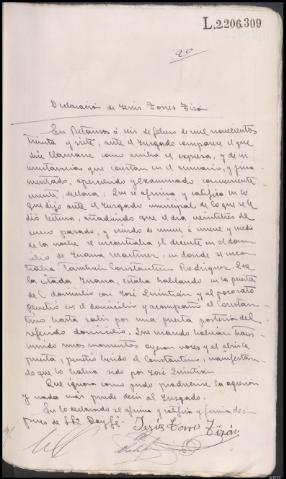 L.2206,309
20
Declaración de Jesús Torres Tizón
En Betanzos a seis de febrero de mil novecientos
treinta y siete, ante el Juzgado comparece el que
dice llamarse como arriba se expresa, y de
circunstancias que constan en el sumario, y jura-
mentado, apercibido y examinado convenientemente
declara: Que se afirma y ratifica en lo
que dijo ante el Juzgado municipal de lo que se le
dió lectura, añadiendo que el día veintisiete del
enero pasado, y siendo de nueve a nueve y media
de la noche se encontraba el decente en el domi-
cilio de Juana Martinez, en donde se encon-
traba tambien Constantino Rodriguez. Que
la citada Juana, estaba hablando en la puerta
de domicilio con José Quintián y al poco rato
penetró en el domicilio y acompañó al Constan-
tino hasta salir por una puerta posterior del
referido domicilio. Que cuando habrían trans-
currido unos momentos oyeron voces y al abrir la
puerta, penetró herido el Constantino, manifestan-
do que lo había sido por José Quintián
Que ignora como pudo producirse la agresion
y nada más puede decir al Juzgado.
En lo declarado se afirma y ratifica y firma des-
pues de S.Sª Doy fé.
Jesús Torres Tizón